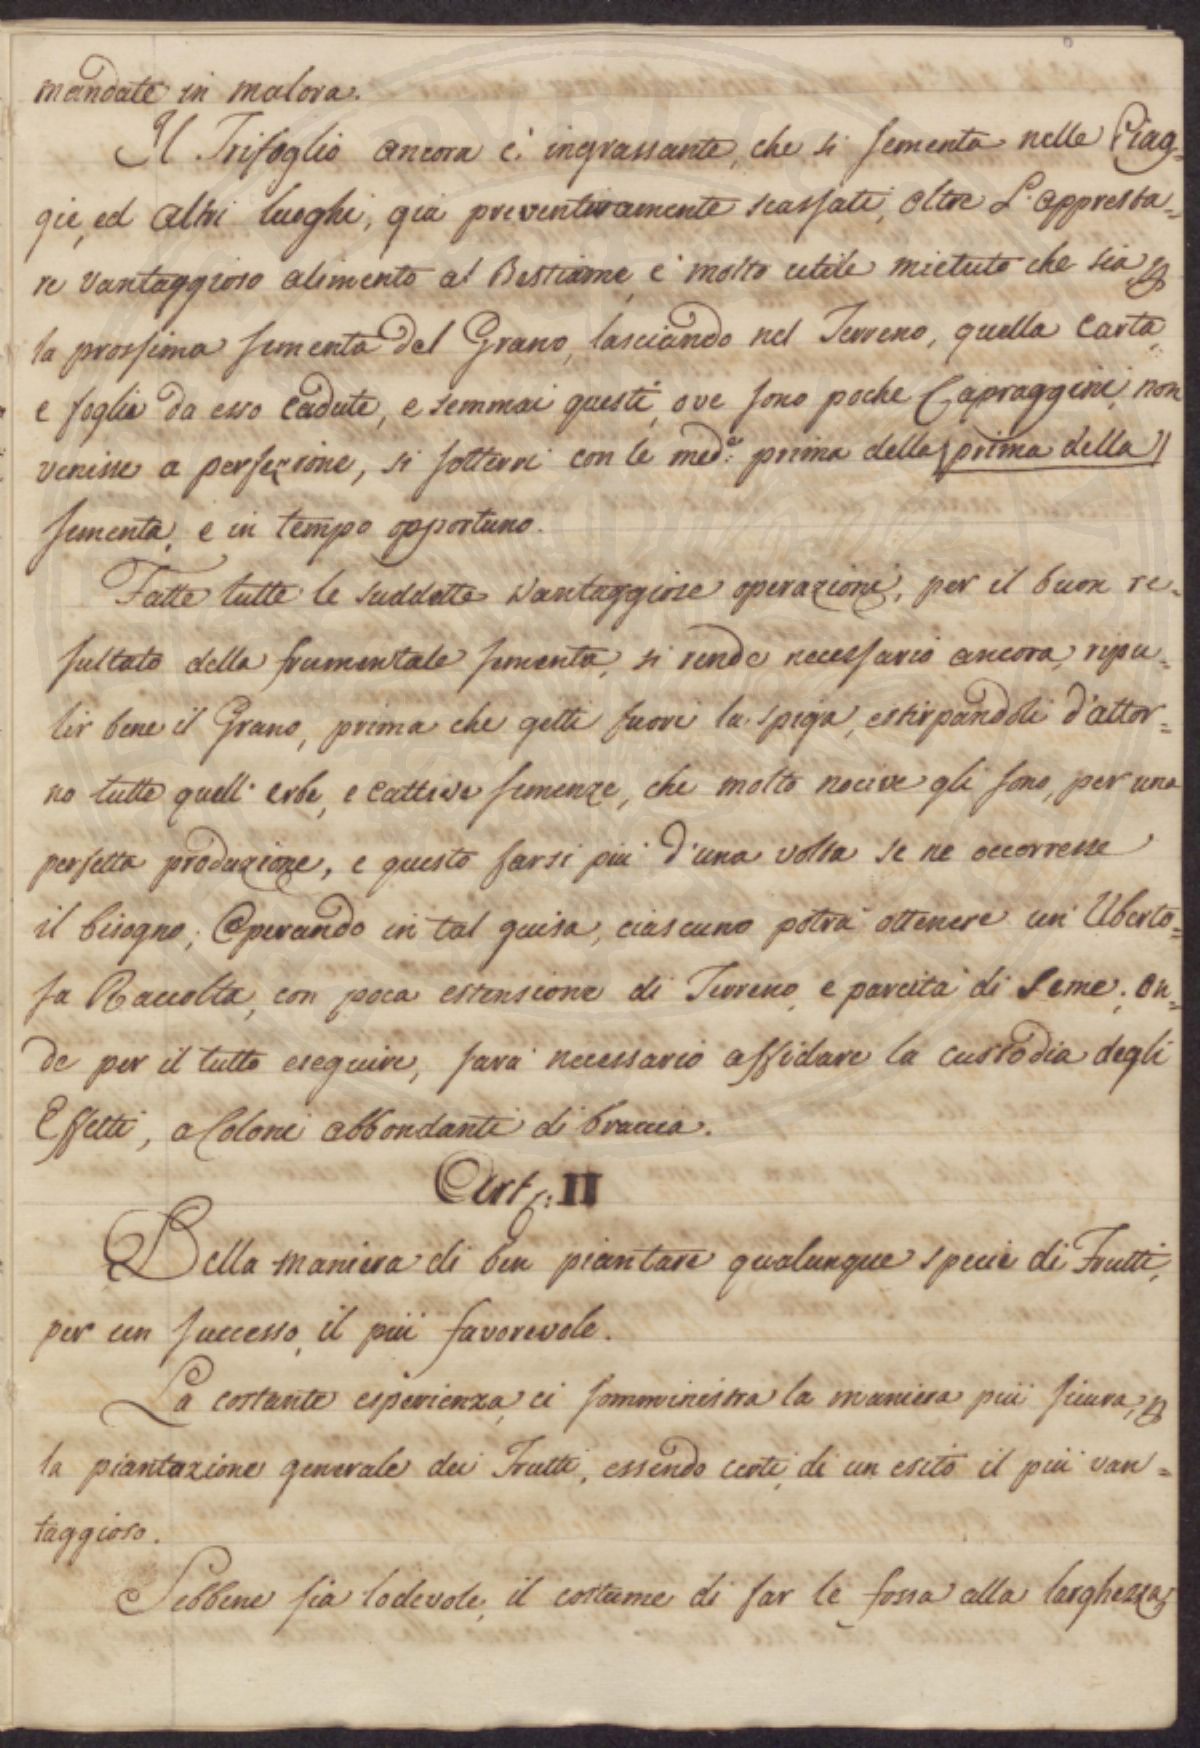 mandate in malora.
Il Trifoglio ancora è ingrassante, che si sementa nelle Piag=
gie, ed altri luoghi, già preventivamente scassati, oltre L'appresta=
re vantaggioso alimento al Bestiame, è molto utile mietuto che sia, p
la prossima sementa del Grano, lasciando nel Terreno, quella Carta,
e foglie da esso cadute, e semmai questi, ove sono poche Capraggini, non
venisse a perfezione, si sotterri con le med.e prima della (prima della)
sementa, e in tempo opportuno.
Fatte tutte le suddette vantaggiose operazioni, per il buon re=
sultato della frumentale sementa, si rende necessario ancora, ripu=
lir bene il Grano, prima che getti fuori la spiga, estirpandoli d'attor=
no tutte quell'erbe, e cattive semenze, che molto nocive gli sono, per una
perfetta produzione, e questo farsi più d'una volta se ne occorresse
il bisogno; Operando in tal guisa, ciascuno potrà ottenere un' Uberto=
sa Raccolta, con poca estensione di Terreno, e parcità di Seme; On=
de per il tutto eseguire, sarà necessario affidare la custodia degli
Effetti, a Coloni abbondanti di braccia.
Art.: II
Della maniera di ben piantare qualunque specie di Frutti,
per un successo, il più favorevole.
La costante esperienza, ci somministra la maniera più sicura, p
la piantazione generale dei Frutti, essendo certi, di un esito il più van=
taggioso.
Sebbene sia lodevole, il costume di far le fossa alla larghezza